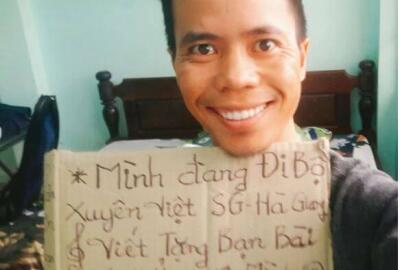 * Mình đang Đi Bộ
Xuyên Việt SG-Hà Giang
& Viết Tặng Bạn Bài